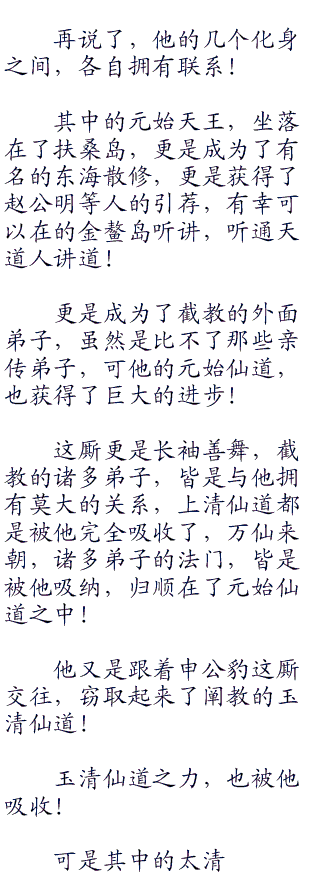 再说了，他的几个化身
之间，各自拥有联系！
其中的元始天王，坐落
在了扶桑岛，更是成为了有
名的东海散修，更是获得了
赵公明等人的引荐，有幸可
以在的金鳌岛听讲，听通天
道人讲道！
更是成为了截教的外面
弟子，虽然是比不了那些亲
传弟子，可他的元始仙道，
也获得了巨大的进步！
这厮更是长袖善舞，截
教的诸多弟子，皆是与他拥
有莫大的关系，上清仙道都
是被他完全吸收了，万仙来
朝，诸多弟子的法门，皆是
被他吸纳，归顺在了元始仙
道之中！
他又是跟着申公豹这厮
交往，窃取起来了阐教的玉
清仙道！
玉清仙道之力，也被他
吸收！
可是其中的太清